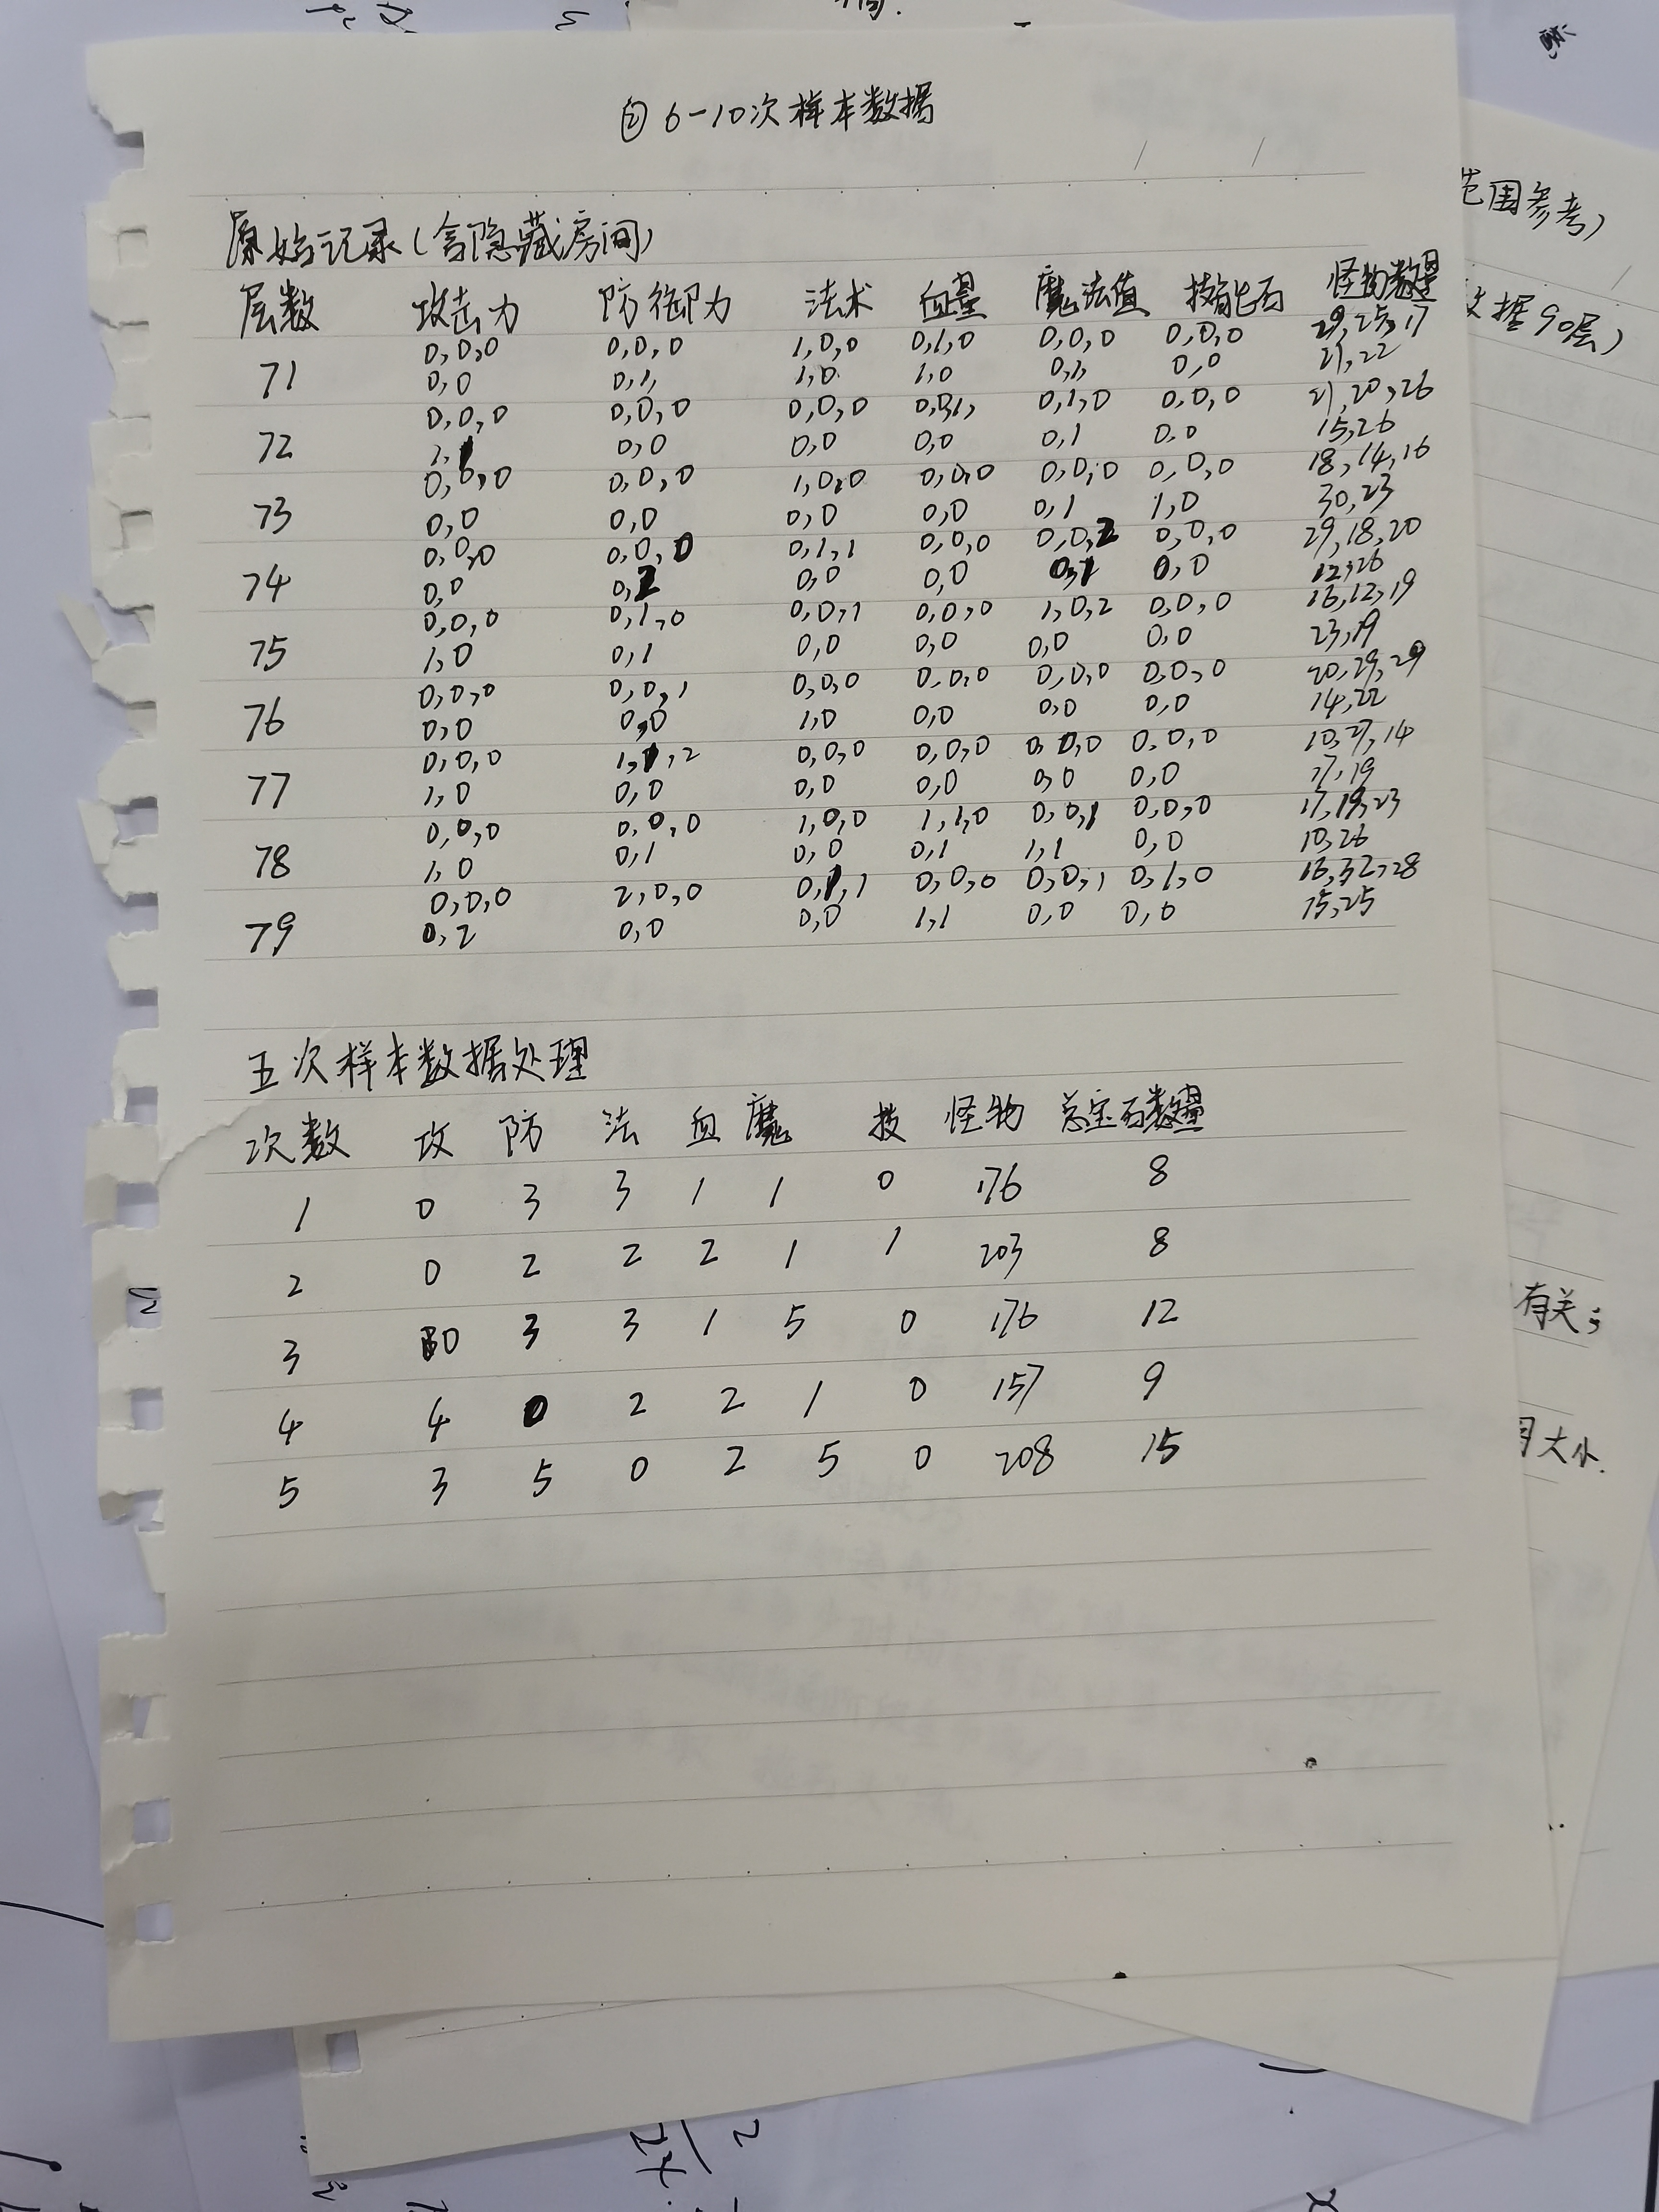 ② 6-10次样本数据
原始记录(含隐藏房间)
层数 攻击力 防御力 法术 血量 魔法值 技能石 怪物数量
0,0,0 0,0,0 1,0,0 0,1,0 0,0,0 0,0,0 29,25,17
71 0,0 0,1, 1,0 1,0 0,1, 0,0 21,22
0,0,0 0,0,0 0,0,0 0,0,1, 0,1,0 0,0,0 21,20,26
72 1,1 0,0 0,0 0,0 0,1 0,0 15,26
0,0,0 0,0,0 1,0,0 0,0,0 0,0,0 0,0,0 18,14,16
73 0,0 0,0 0,0 0,0 0,1 1,0 30,23
0,0,0 0,0,0 0,1,1 0,0,0 0,0,2 0,0,0 29,18,20
74 0,0 0,2 0,0 0,0 0,1 0,0 12,26
0,0,0 0,1,0 0,0,1 0,0,0 1,0,2 0,0,0 16,12,19
75 1,0 0,1 0,0 0,0 0,0 0,0 23,19
0,0,0 0,0,1 0,0,0 0,0,0 0,0,0 0,0,0 20,29,29
76 0,0 0,0 1,0 0,0 0,0 0,0 14,22
0,0,0 1,1,2 0,0,0 0,0,0 0,0,0 0,0,0 10,27,14
77 1,0 0,0 0,0 0,0 0,0 0,0 17,19
0,0,0 0,0,0 1,0,0 1,1,0 0,0,1 0,0,0 17,19,23
78 1,0 0,1 0,0 0,1 1,1 0,0 10,26
0,0,0 2,0,0 0,1,1 0,0,0 0,0,1 0,1,0 16,32,28
79 0,2 0,0 0,0 1,1 0,0 0,0 15,25
五次样本数据处理
次数 攻 防 法 血 魔 技 怪物 总宝石数量
1 0 3 3 1 1 0 176 8
2 0 2 2 2 1 1 203 8
3 0 3 3 1 5 0 176 12
4 4 0 2 2 1 0 157 9
5 3 5 0 2 5 0 208 15
范围参考)
数据90层)
有关;
大小.